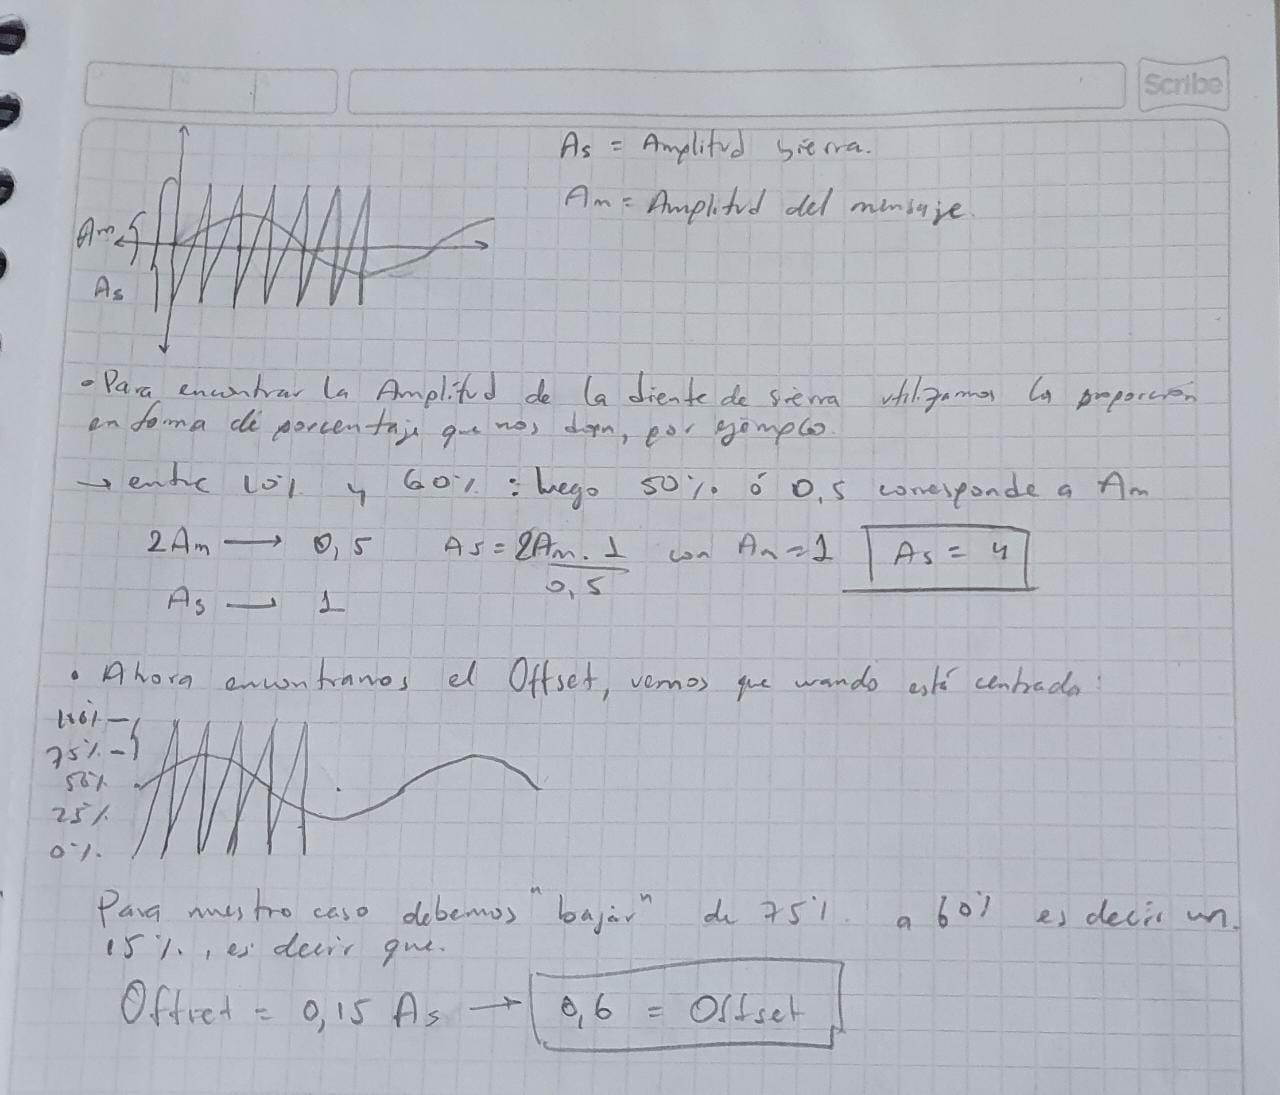 Scribe
As = Amplitud sierra.
Am = Amplitud del mensaje.
Am
As
• Para encontrar la Amplitud de la diente de sierra utilizamos la proporción
en forma de porcentaje que nos dan, por ejemplo.
→ entre 10% y 60% : luego 50% ó 0,5 corresponde a Am
2Am → 0,5 As = 2Am . 1 / 0,5 con Am = 1 As = 4
As → 1
• Ahora encontramos el Offset, vemos que cuando está centrada:
100%
75%
50%
25%
0%.
Para nuestro caso debemos "bajar" de 75% a 60% es decir un
15%., es decir que.
Offset = 0,15 As → 0,6 = Offset